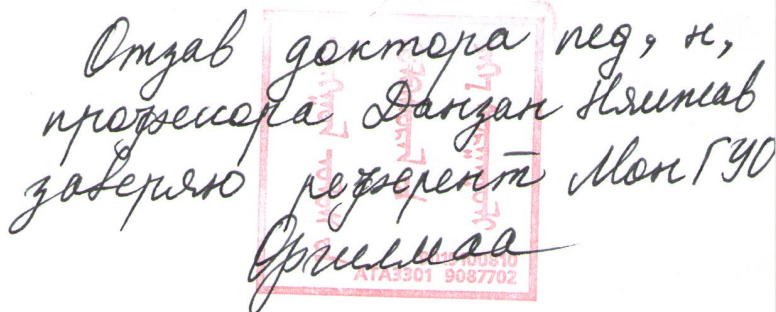 Отзав доктора пед, н,
профессора Данзан Нямжав
заверяю референт МонГУО
Оргилмаа
АТА3301 9087702